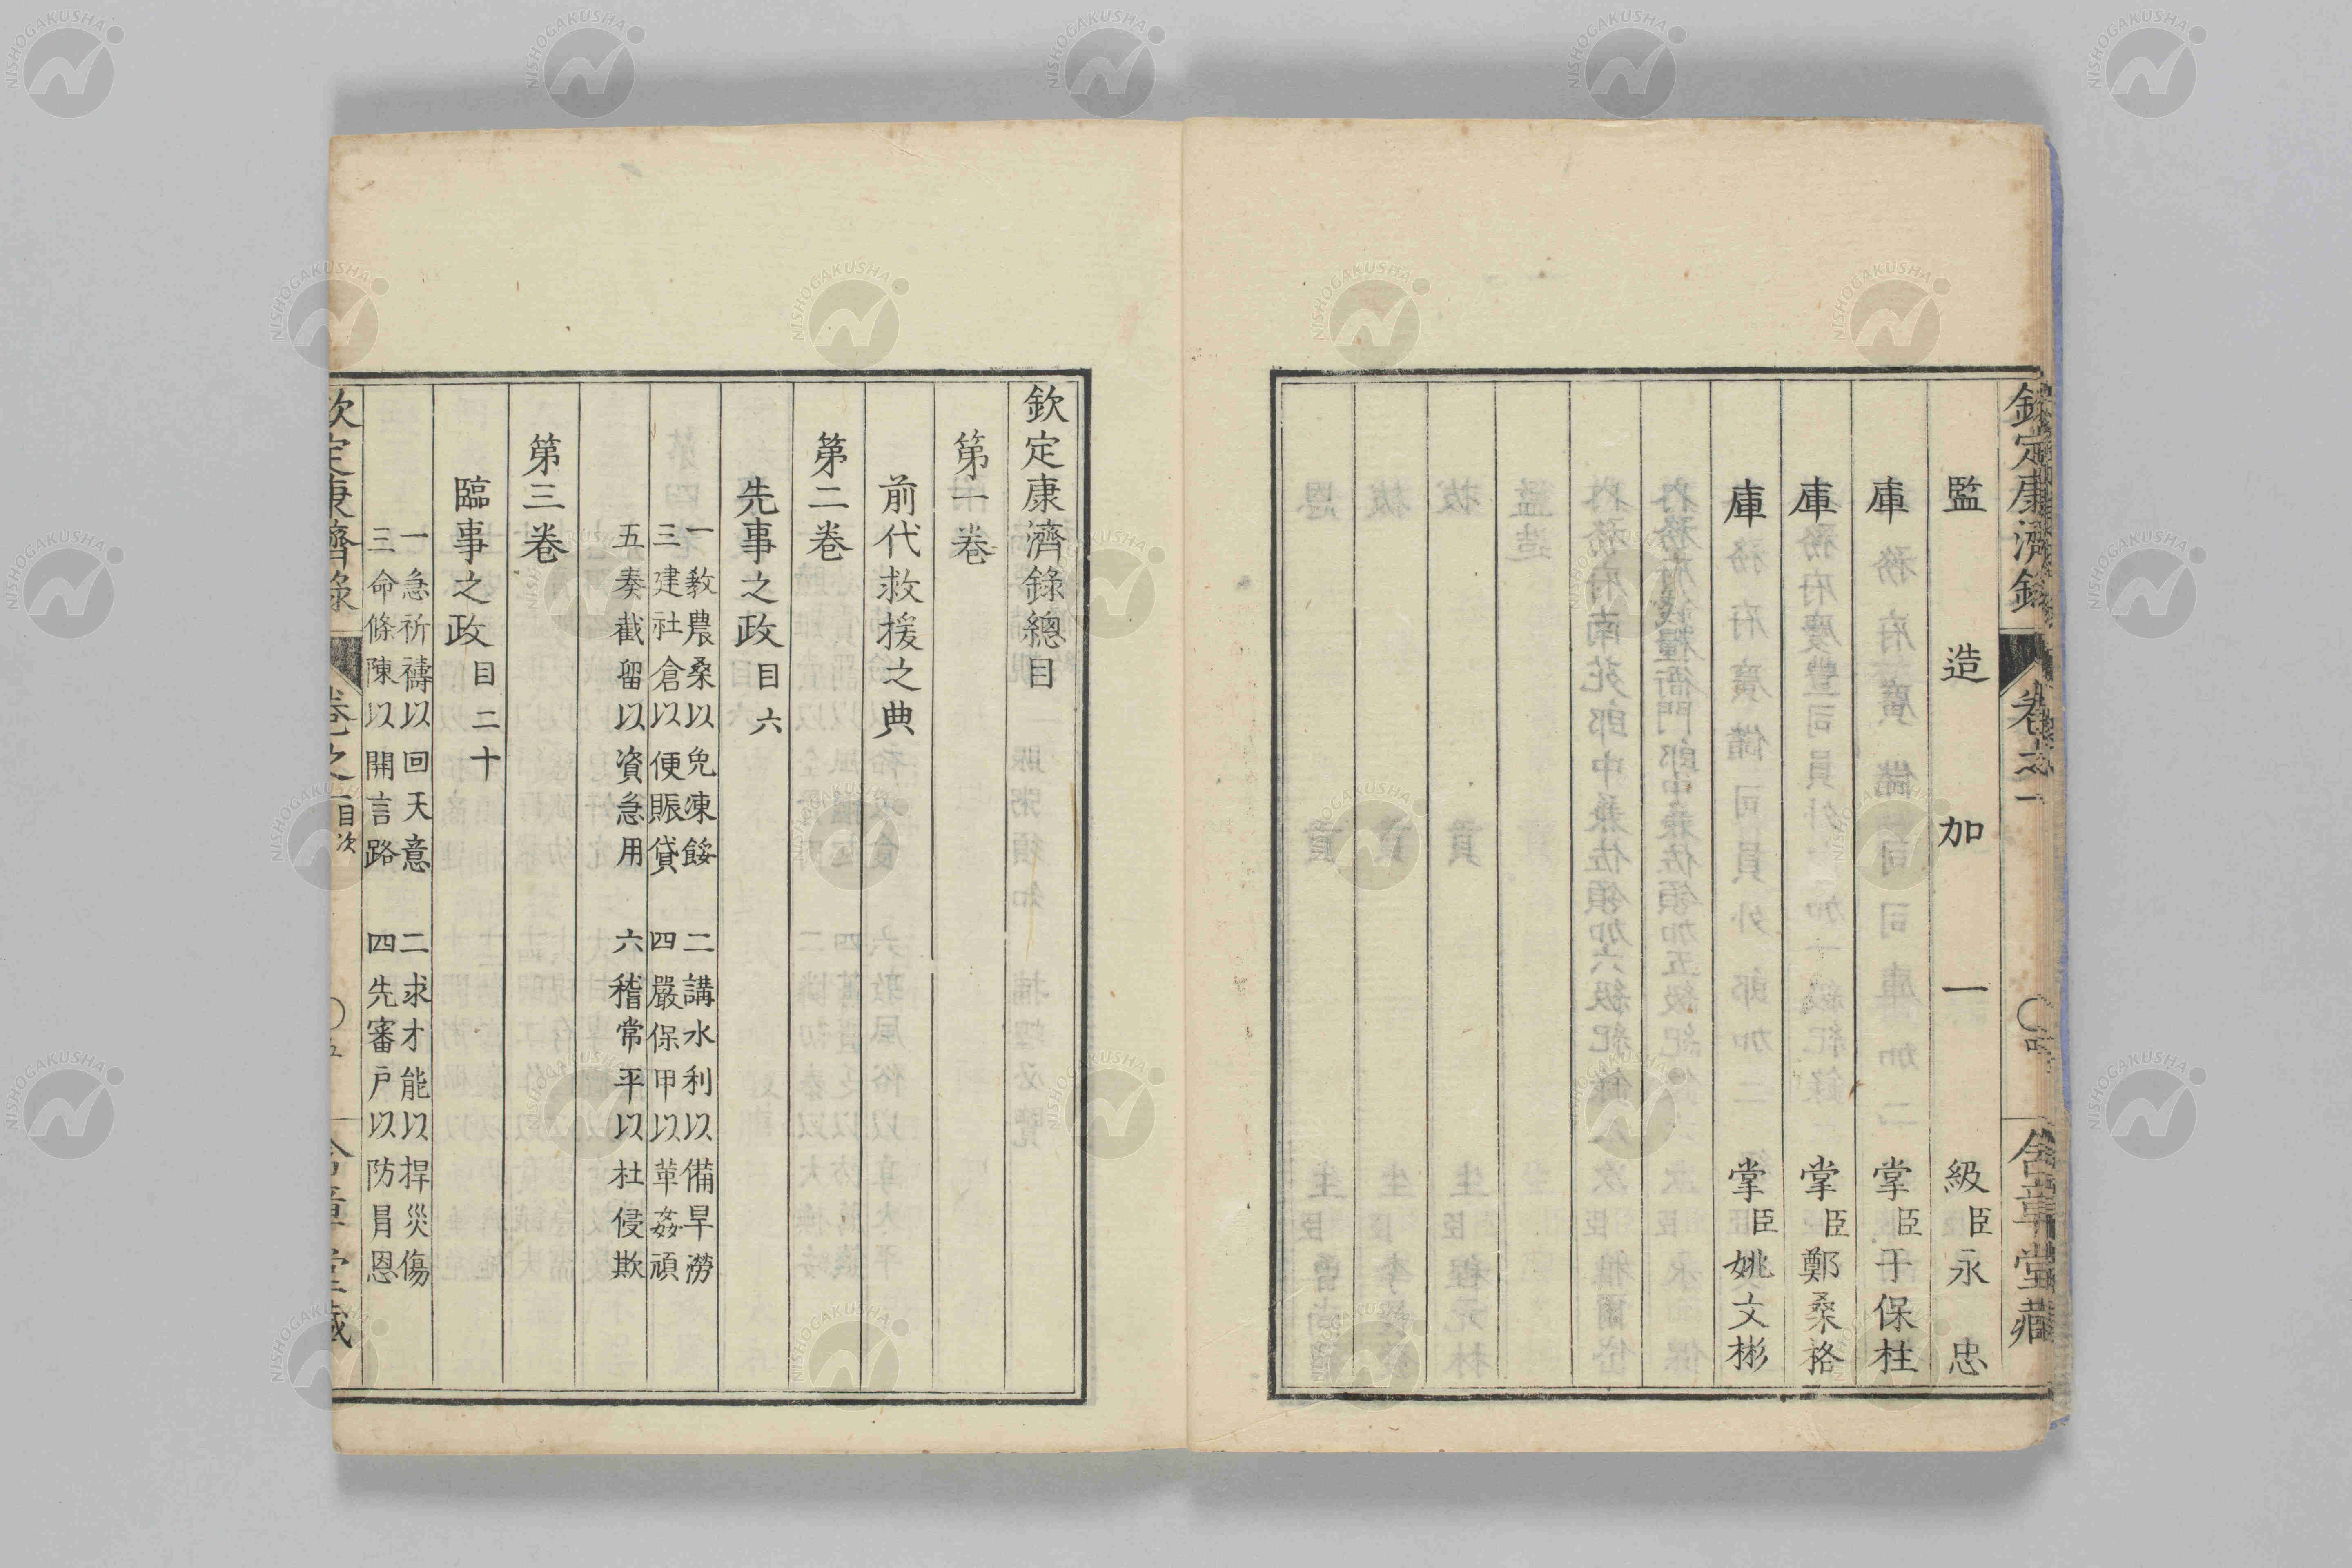 欽定康濟錄 卷之一 含章堂藏
監造加一級臣永忠
庫掌臣于保柱
庫掌臣鄭桑格
庫掌臣姚文彬
欽定康濟錄總目
第一卷
前代救援之典
第二卷
先事之政目六
一教農桑以免凍餒 二講水利以備旱澇
三建社倉以便賑貸 四嚴保甲以革姦頑
五奏截留以資急用 六稽常平以杜侵欺
第三卷
臨事之政目二十
一急祈禱以回天意 二求才能以捍災傷
三命條陳以開言路 四先審戶以防冒恩
欽定康濟錄 卷之一 目次 五 含章堂藏
NISHOGAKUSHA